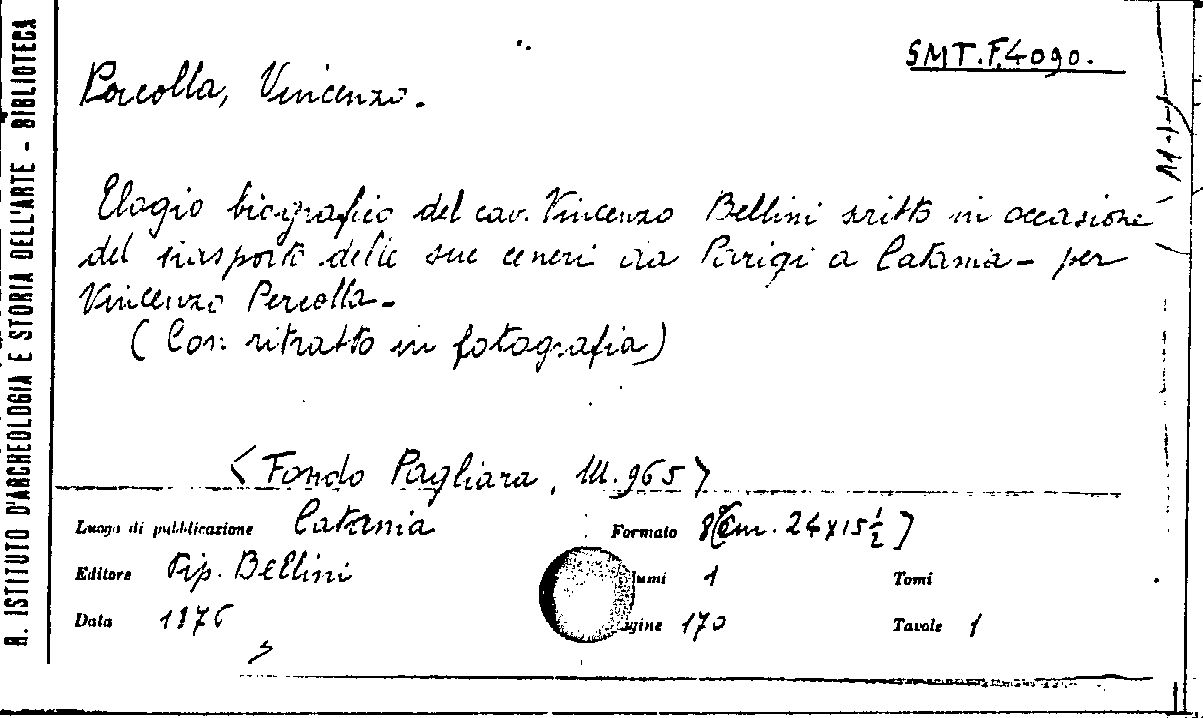 R. ISTITUTO D'ARCHEOLOGIA E STORIA DELL'ARTE - BIBLIOTECA
SMT.F.4090.
Percolla, Vincenzo.
Elogio biografico del cav. Vincenzo Bellini sritto in occasione
del trasporto delle sue ceneri da Parigi a Catania - per
Vincenzo Percolla -
(Con ritratto in fotografia)
<Fondo Pagliara, III. 965>
Luogo di pubblicazione Catania
Formato 8° (cm. 24x15½)
Editore Tip. Bellini
lumi 1
Tomi
Data 1876
gine 170
Tavole 1